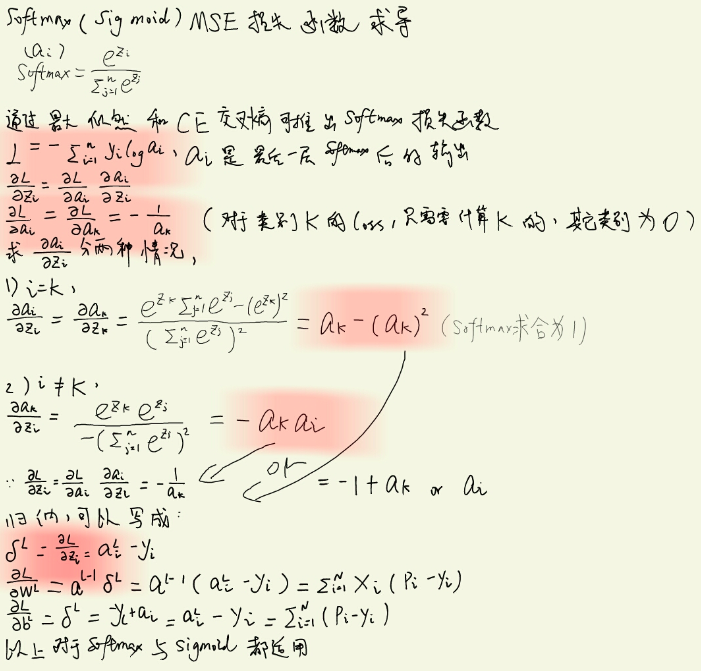 Softmax (Sigmoid) MSE 损失函数求导
(ai)
Softmax = e^{zi} / Σ_{j=1}^{n} e^{zj}
通过最大似然和CE交叉熵可推出Softmax损失函数
L = - Σ_{i=1}^{n} yi log ai, ai是最后一层softmax后的输出
∂L/∂zi = ∂L/∂ai ∂ai/∂zi
∂L/∂ai = ∂L/∂ak = - 1/ak (对于类别K的loss, 只需要计算K的, 其它类别为0)
求 ∂ai/∂zi 分两种情况,
1) i=k,
∂ai/∂zi = ∂ak/∂zk = (e^{zk} Σ_{j=1}^{n} e^{zj} - (e^{zk})^2) / (Σ_{j=1}^{n} e^{zj})^2 = ak - (ak)^2 (Softmax求合为1)
2) i≠k,
∂ak/∂zi = e^{zk} e^{zj} / -(Σ_{j=1}^{n} e^{zj})^2 = - ak ai
∵ ∂L/∂zi = ∂L/∂ai ∂ai/∂zi = - 1/ak or = -1 + ak or ai
归纳, 可以写成:
δ^L = ∂L/∂zi = ai^L - yi
∂L/∂W^L = a^{L-1} δ^L = a^{L-1} (ai^L - yi) = Σ_{i=1}^{N} Xi (Pi - yi)
∂L/∂b^L = δ^L = yi + ai = ai^L - yi = Σ_{i=1}^{N} (Pi - yi)
以上对于Softmax与Sigmoid都适用